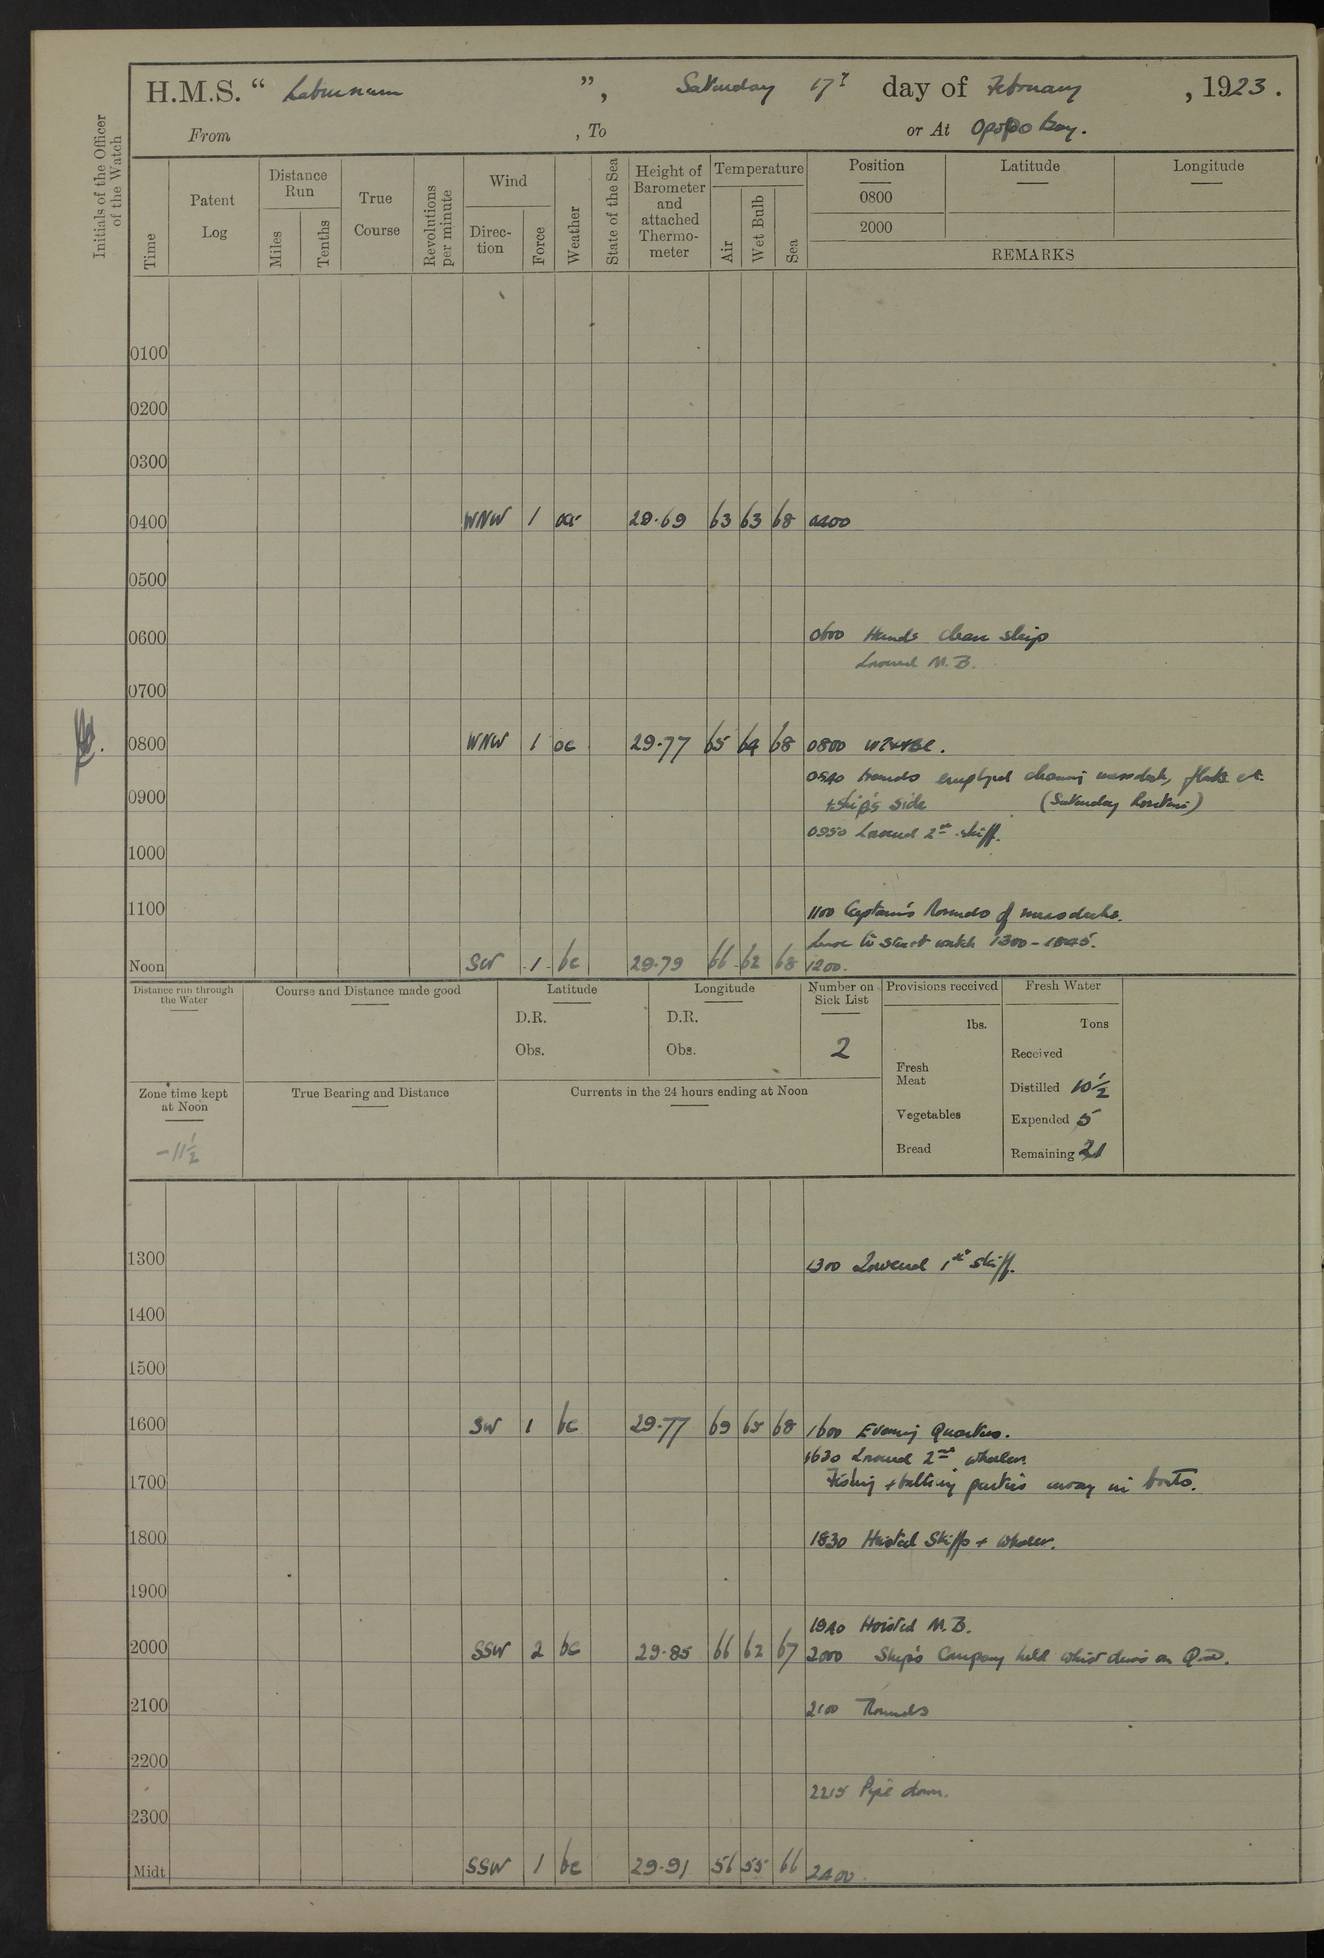 H.M.S. “ Laburnum ”, Saturday 17th day of February, 1923.
From , To or At Opopo Bay.
Initials of the Officer of the Watch
Time
Patent Log
Distance Run
Miles
Tenths
True Course
Revolutions per minute
Wind
Direction
Force
Weather
State of the Sea
Height of Barometer and attached Thermometer
Temperature
Air
Wet Bulb
Sea
Position
0800
2000
Latitude
Longitude
REMARKS
0100
0200
0300
0400 WNW 1 29.69 63 63 68 0400
0500
0600 0600 Hands clean ship
Lowered M.B.
0700
0800 WNW 1 oc 29.77 65 64 68 0800
0840 Hands employed cleaning messdeck, flats etc
0900 + ship's side (Saturday Routine)
0950 Lowered 2nd skiff.
1000
1100 1100 Captain's Rounds of messdecks.
Leave to starbd watch 1300 - 1845.
Noon SW 1 bc 29.79 66 62 68 1200.
Distance run through the Water
Course and Distance made good
Latitude
D.R.
Obs.
Longitude
D.R.
Obs.
Number on Sick List
2
Provisions received
lbs.
Fresh Meat
Vegetables
Bread
Fresh Water
Tons
Received
Distilled 10½
Expended 5
Remaining 21
Zone time kept at Noon
-11½
True Bearing and Distance
Currents in the 24 hours ending at Noon
1300 1300 Lowered 1st skiff.
1400
1500
1600 SW 1 bc 29.77 69 65 68 1600 Evening Quarters.
1630 Lowered 2nd whaler.
1700 Fishing + bathing parties away in boats.
1800 1830 Hoisted Skiffs + whaler.
1900
1940 Hoisted M.B.
2000 SSW 2 bc 29.85 66 62 67 2000 Ship's Company held whist drive on QD.
2100 2100 Rounds
2200
2215 Pipe down.
2300
Midt SSW 1 bc 29.91 56 55 66 2400.